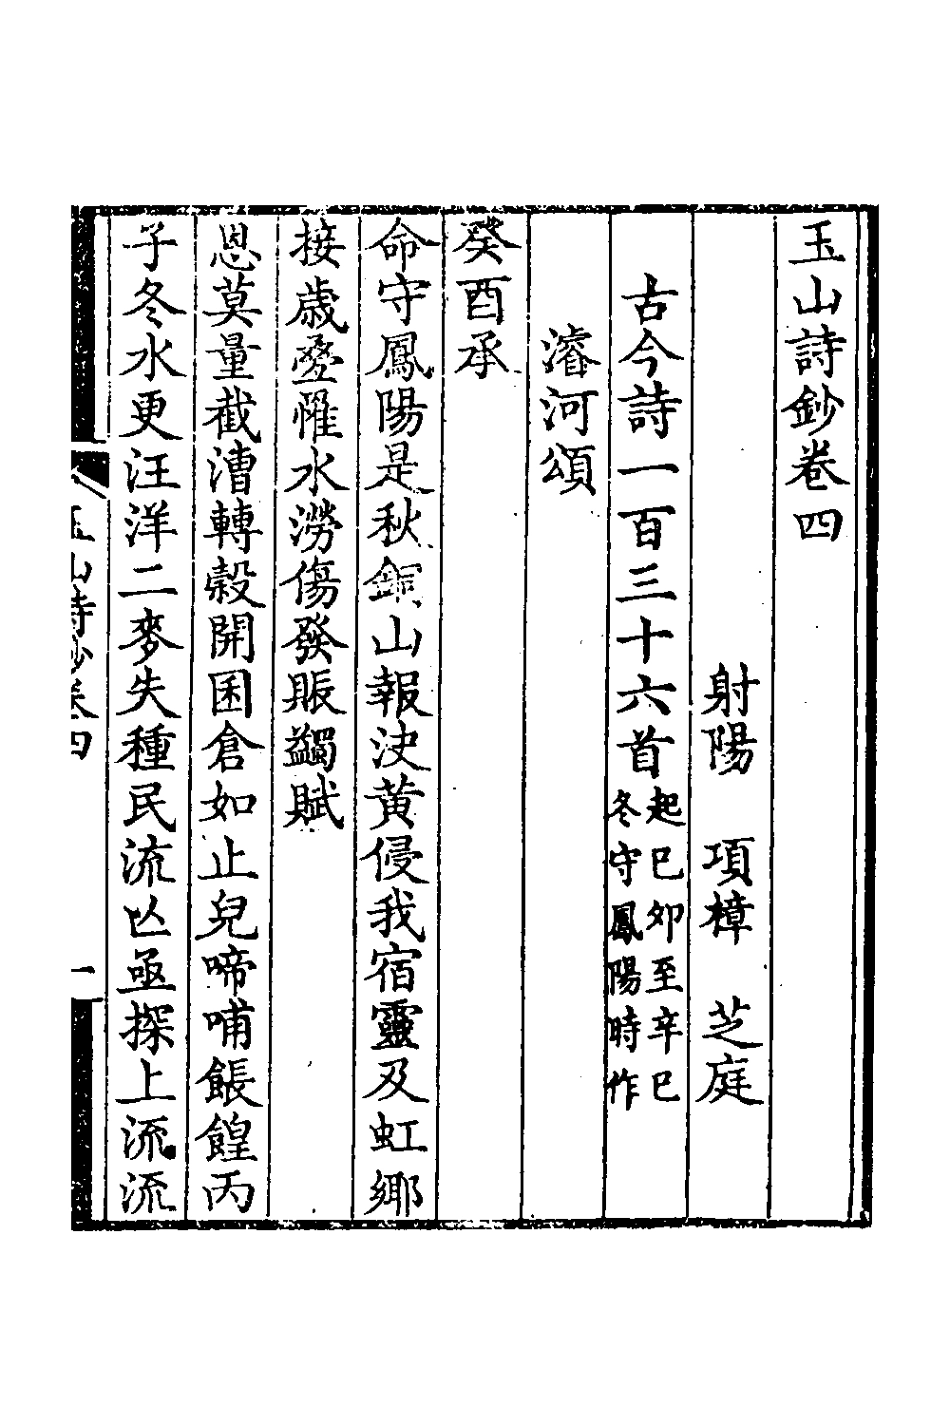 玉山詩鈔卷四
射陽　項樟　芝庭
古今詩一百三十六首起己夘至辛巳冬守鳳陽時作
濬河頌
癸酉承
命守鳳陽是秋銅山報决黄侵我宿靈及虹鄉
接歲㬪罹水澇傷發賑蠲賦
恩莫量截漕轉榖開囷倉如止兒啼哺餦餭丙
子冬水更汪洋二麥失種民流亾亟探上流流
玉山詩鈔卷四
一